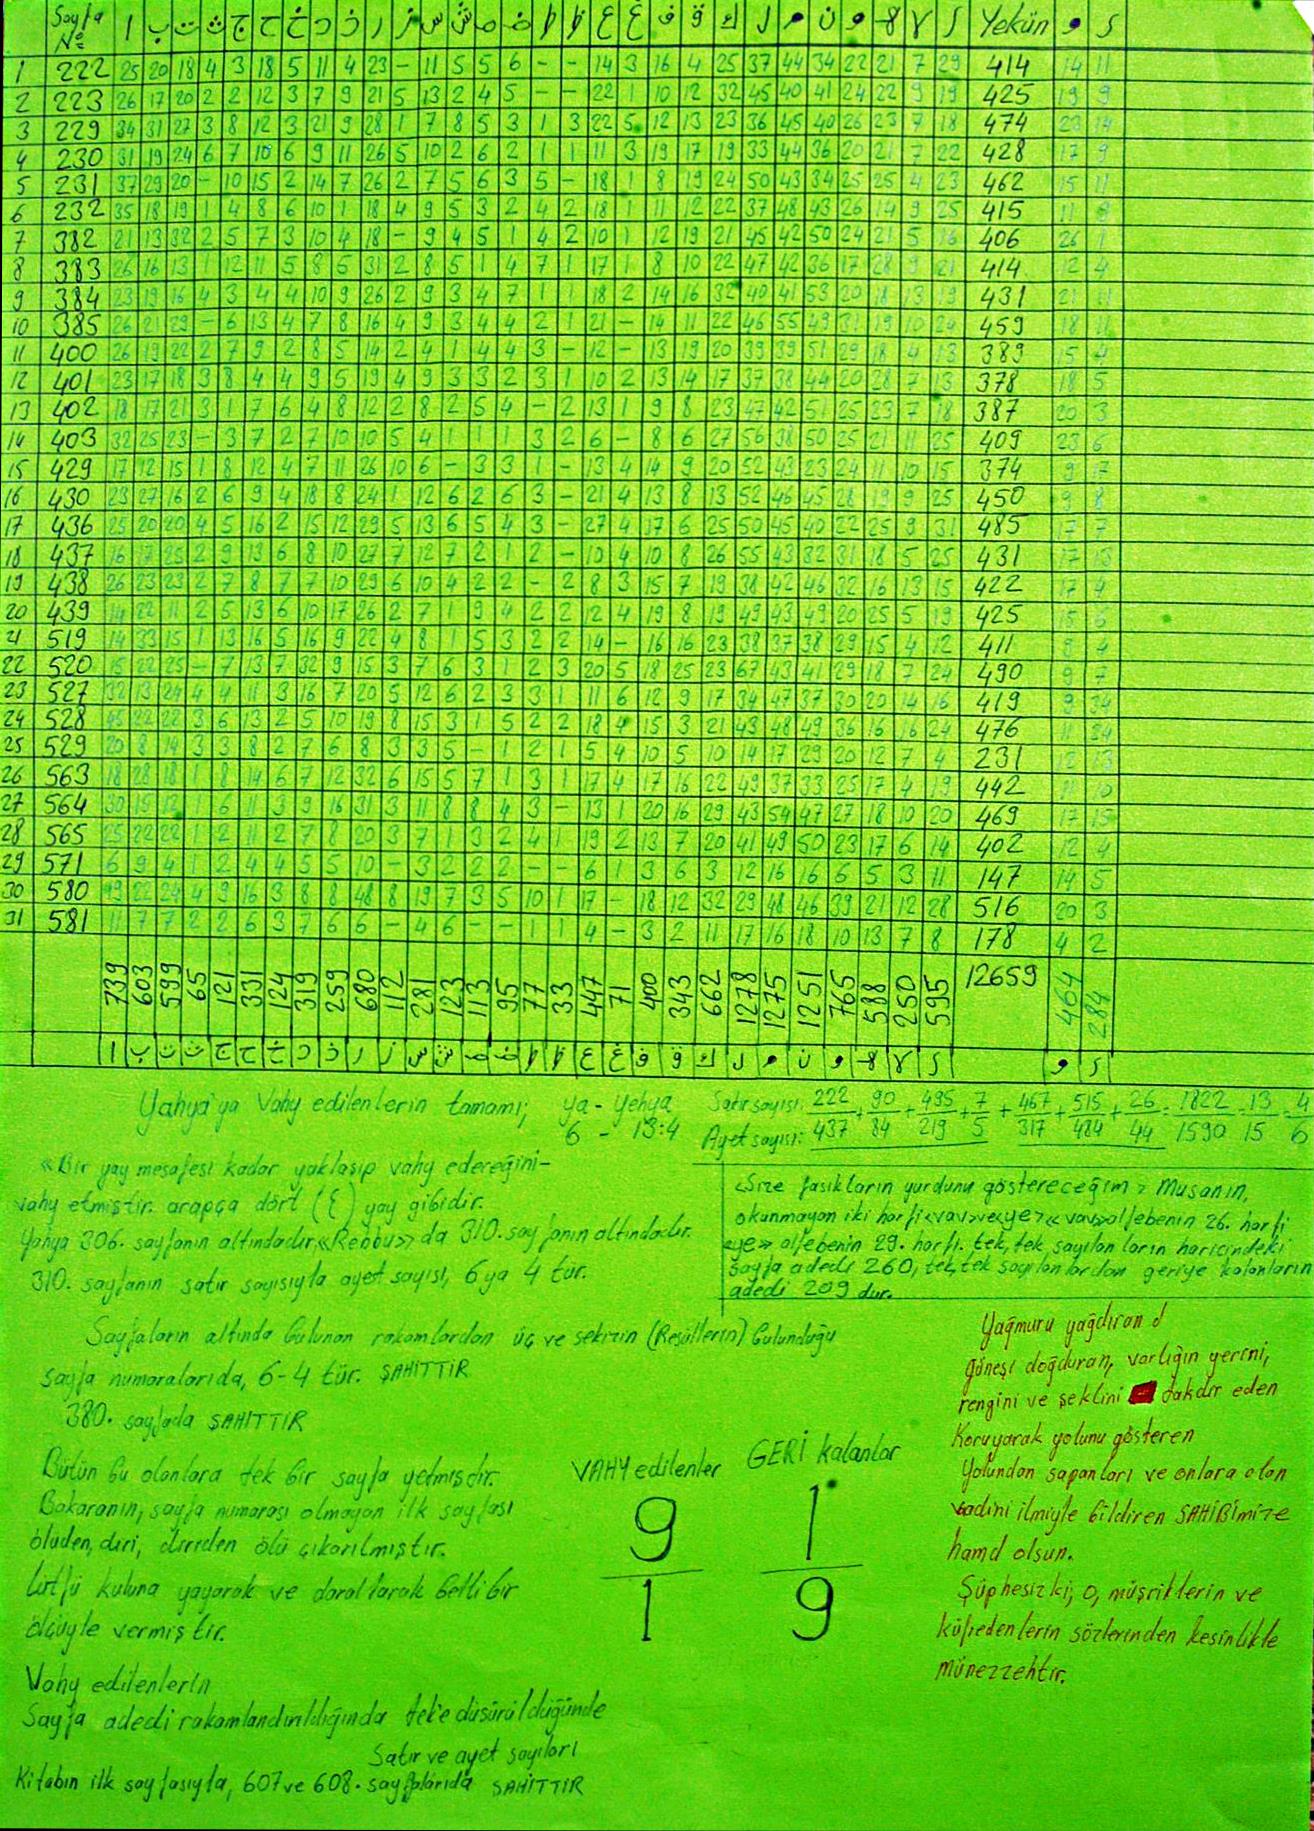 Sayfa No ا ب ت ث ج ح خ د ذ ر ز س ش ص ض ط ظ ع غ ف ق ك ل م ن و ه لا ى Yekün و ى
1 222 25 20 18 4 3 18 5 11 4 23 - 11 5 5 6 - - 14 3 16 4 25 37 44 34 22 21 7 29 414 14 11
2 223 26 17 20 2 2 12 3 7 9 21 5 13 2 4 5 - - 22 1 10 12 32 45 40 41 24 22 9 19 425 19 9
3 229 34 31 27 3 8 12 3 21 9 28 1 7 8 5 3 1 3 22 5 12 13 23 36 45 40 26 23 7 18 474 23 14
4 230 31 19 24 6 7 10 6 9 11 26 5 10 2 6 2 1 1 11 3 19 17 19 33 44 36 20 21 7 22 428 17 9
5 231 37 29 20 - 10 15 2 14 7 26 2 7 5 6 3 5 - 18 1 8 19 24 50 43 34 25 25 4 23 462 15 11
6 232 35 18 19 1 4 8 6 10 1 18 4 9 5 3 2 4 2 18 1 11 12 22 37 48 43 26 14 9 25 415 11
7 382 21 13 32 2 5 7 3 10 4 18 - 9 4 5 1 4 2 10 1 12 19 21 45 42 50 24 21 5 16 406 26 1
8 383 26 16 13 1 12 11 5 8 6 31 2 8 5 1 4 7 1 17 1 8 10 22 47 42 36 17 28 9 21 414 12 4
9 384 23 19 16 4 3 4 4 10 9 26 2 9 3 4 7 1 1 18 2 14 16 32 40 41 53 20 18 13 19 431 21 11
10 385 26 21 29 - 6 13 4 7 8 16 4 9 3 4 4 2 1 21 - 14 11 22 46 55 49 31 19 10 24 459 18 11
11 400 26 19 22 2 7 9 2 8 5 14 2 4 1 4 4 3 - 12 - 13 19 20 39 39 51 29 18 4 13 389 15 4
12 401 23 17 18 3 8 4 4 9 5 19 4 9 3 3 2 3 1 10 2 13 14 17 37 38 44 20 28 7 13 378 18 5
13 402 18 17 21 3 1 7 6 4 8 12 2 8 2 5 4 - 2 13 1 9 8 23 47 42 51 25 23 7 18 387 20 3
14 403 32 25 23 - 3 7 2 7 10 10 5 4 1 1 1 3 2 6 - 8 6 27 56 38 50 25 21 11 25 409 23 6
15 429 17 12 15 1 8 12 4 7 11 26 10 6 - 3 3 1 - 13 4 14 9 20 52 43 23 24 11 10 15 374 9 17
16 430 23 27 16 2 6 9 4 18 8 24 1 12 6 2 6 3 - 21 4 13 8 13 52 46 45 28 19 9 25 450 9 8
17 436 25 20 20 4 5 16 2 15 12 29 5 13 6 5 4 3 - 27 4 17 6 25 50 45 40 22 25 9 31 485 17 7
18 437 16 17 25 2 9 13 6 8 10 27 7 12 7 2 1 2 - 10 4 10 8 26 55 43 32 31 18 5 25 431 17 13
19 438 26 23 23 2 7 8 7 7 10 29 6 10 4 2 2 - 2 8 3 15 7 19 38 42 46 32 16 13 15 422 17 4
20 439 14 22 11 2 5 13 6 10 17 26 2 7 1 9 4 2 2 12 4 19 8 19 49 43 49 20 25 5 19 425 15 6
21 519 14 33 15 1 13 16 5 16 9 22 4 8 1 5 3 2 2 14 - 16 16 23 38 37 38 29 15 4 12 411 8 4
22 520 15 22 25 - 7 13 7 32 9 15 3 7 6 3 2 3 20 5 18 25 23 67 43 41 29 18 7 24 490 9 7
23 527 32 13 24 4 4 11 3 16 7 20 5 12 6 2 3 3 1 11 6 12 9 17 34 47 37 30 20 14 16 419 9 34
24 528 45 22 22 3 6 13 2 5 10 19 8 15 3 1 5 2 2 18 4 15 3 21 43 48 49 36 16 16 24 476 11 34
25 529 20 8 14 3 3 8 2 7 6 8 3 3 5 - 1 2 1 5 4 10 5 10 14 17 29 20 12 7 4 231 12 13
26 563 18 28 18 1 8 14 6 7 12 32 6 15 5 7 1 3 1 17 4 17 16 22 49 37 33 25 17 4 19 442 11 10
27 564 30 15 12 1 6 11 3 9 16 31 3 11 8 8 4 3 - 13 1 20 16 29 43 54 47 27 18 10 20 469 17 15
28 565 25 22 22 1 2 11 2 7 8 20 3 7 1 3 2 4 1 19 2 13 7 20 41 49 50 23 17 6 14 402 12 4
29 571 6 9 4 1 2 4 4 5 5 10 - 3 2 2 2 - - 6 1 3 6 3 12 16 16 6 5 3 11 147 14 5
30 580 49 22 24 4 9 16 3 8 8 48 8 19 7 3 5 10 1 17 - 18 12 32 29 48 46 39 21 12 28 516 20 3
31 581 11 7 7 2 2 6 3 7 6 6 - 4 6 - - 1 1 4 - 3 2 11 17 16 18 10 13 7 8 178 4 2
739 603 599 65 121 331 124 319 259 680 112 281 123 113 95 77 33 447 71 400 343 662 1278 1275 1251 765 588 250 595 12659 464 284
ا ب ت ث ج ح خ د ذ ر ز س ش ص ض ط ظ ع غ ف ق ك ل م ن و ه لا ى و ى
Yahya'ya Vahy edilenlerin tamamı; ya - yehya
6 - 13:4
Satır sayısı: 222 + 90 + 495 + 7 + 467 + 515 + 26 = 1822 = 13 = 4
Ayet sayısı: 437 84 219 5 317 484 44 1590 15 6
«Bir yay mesafesi kadar yaklaşıp vahy edereğini-
vahy etmiştir. arapça dört (٤) yay gibidir.
Yahya 306. sayfanın altındadır, «Rebbu» da 310. sayfanın altındadır.
310. sayfanın satır sayısıyla ayet sayısı, 6 ya 4 tür.
«Size fasıkların yurdunu göstereceğim» Musanın,
okunmayan iki harfi «vav» ve «ye» «vav» alfebenin 26. harfi
«ye» alfebenin 29. harfi. tek, tek, sayılanların haricindeki
sayfa adedi 260, tek, tek sayılanlardan geriye kalanların
adedi 209 dur.
Sayfaların altında bulunan rakamlardan üç ve sekizin (Resüllerin) bulunduğu
sayfa numaralarıda, 6-4 tür. ŞAHİTTİR
380. sayfada ŞAHİTTİR
Bütün bu olanlara tek bir sayfa yetmişdir.
Bakaranın, sayfa numarası olmayan ilk sayfası
ölüden, diri, diriden ölü çıkarılmıştır.
Lütfü kuluna yayarak ve daraltarak belli bir
ölçüyle vermiştir.
VAHY edilenler GERİ kalanlar
9 1
1 9
Yağmuru yağdıran
güneşi doğduran, varlığın yerini,
rengini ve şeklini takdir eden
Koruyarak yolunu gösteren
Yolundan sapanları ve onlara olan
vadini ilmiyle bildiren SAHİBİMİZE
hamd olsun.
Şüphesizki, O, müşriklerin ve
küfredenlerin sözlerinden kesinlikle
münezzehtir.
Vahy edilenlerin
Sayfa adedi rakamlandırıldığında tek'e düşürüldüğünde
Satır ve ayet sayıları
Kitabın ilk sayfasıyla, 607 ve 608. sayfalarıda ŞAHİTTİR